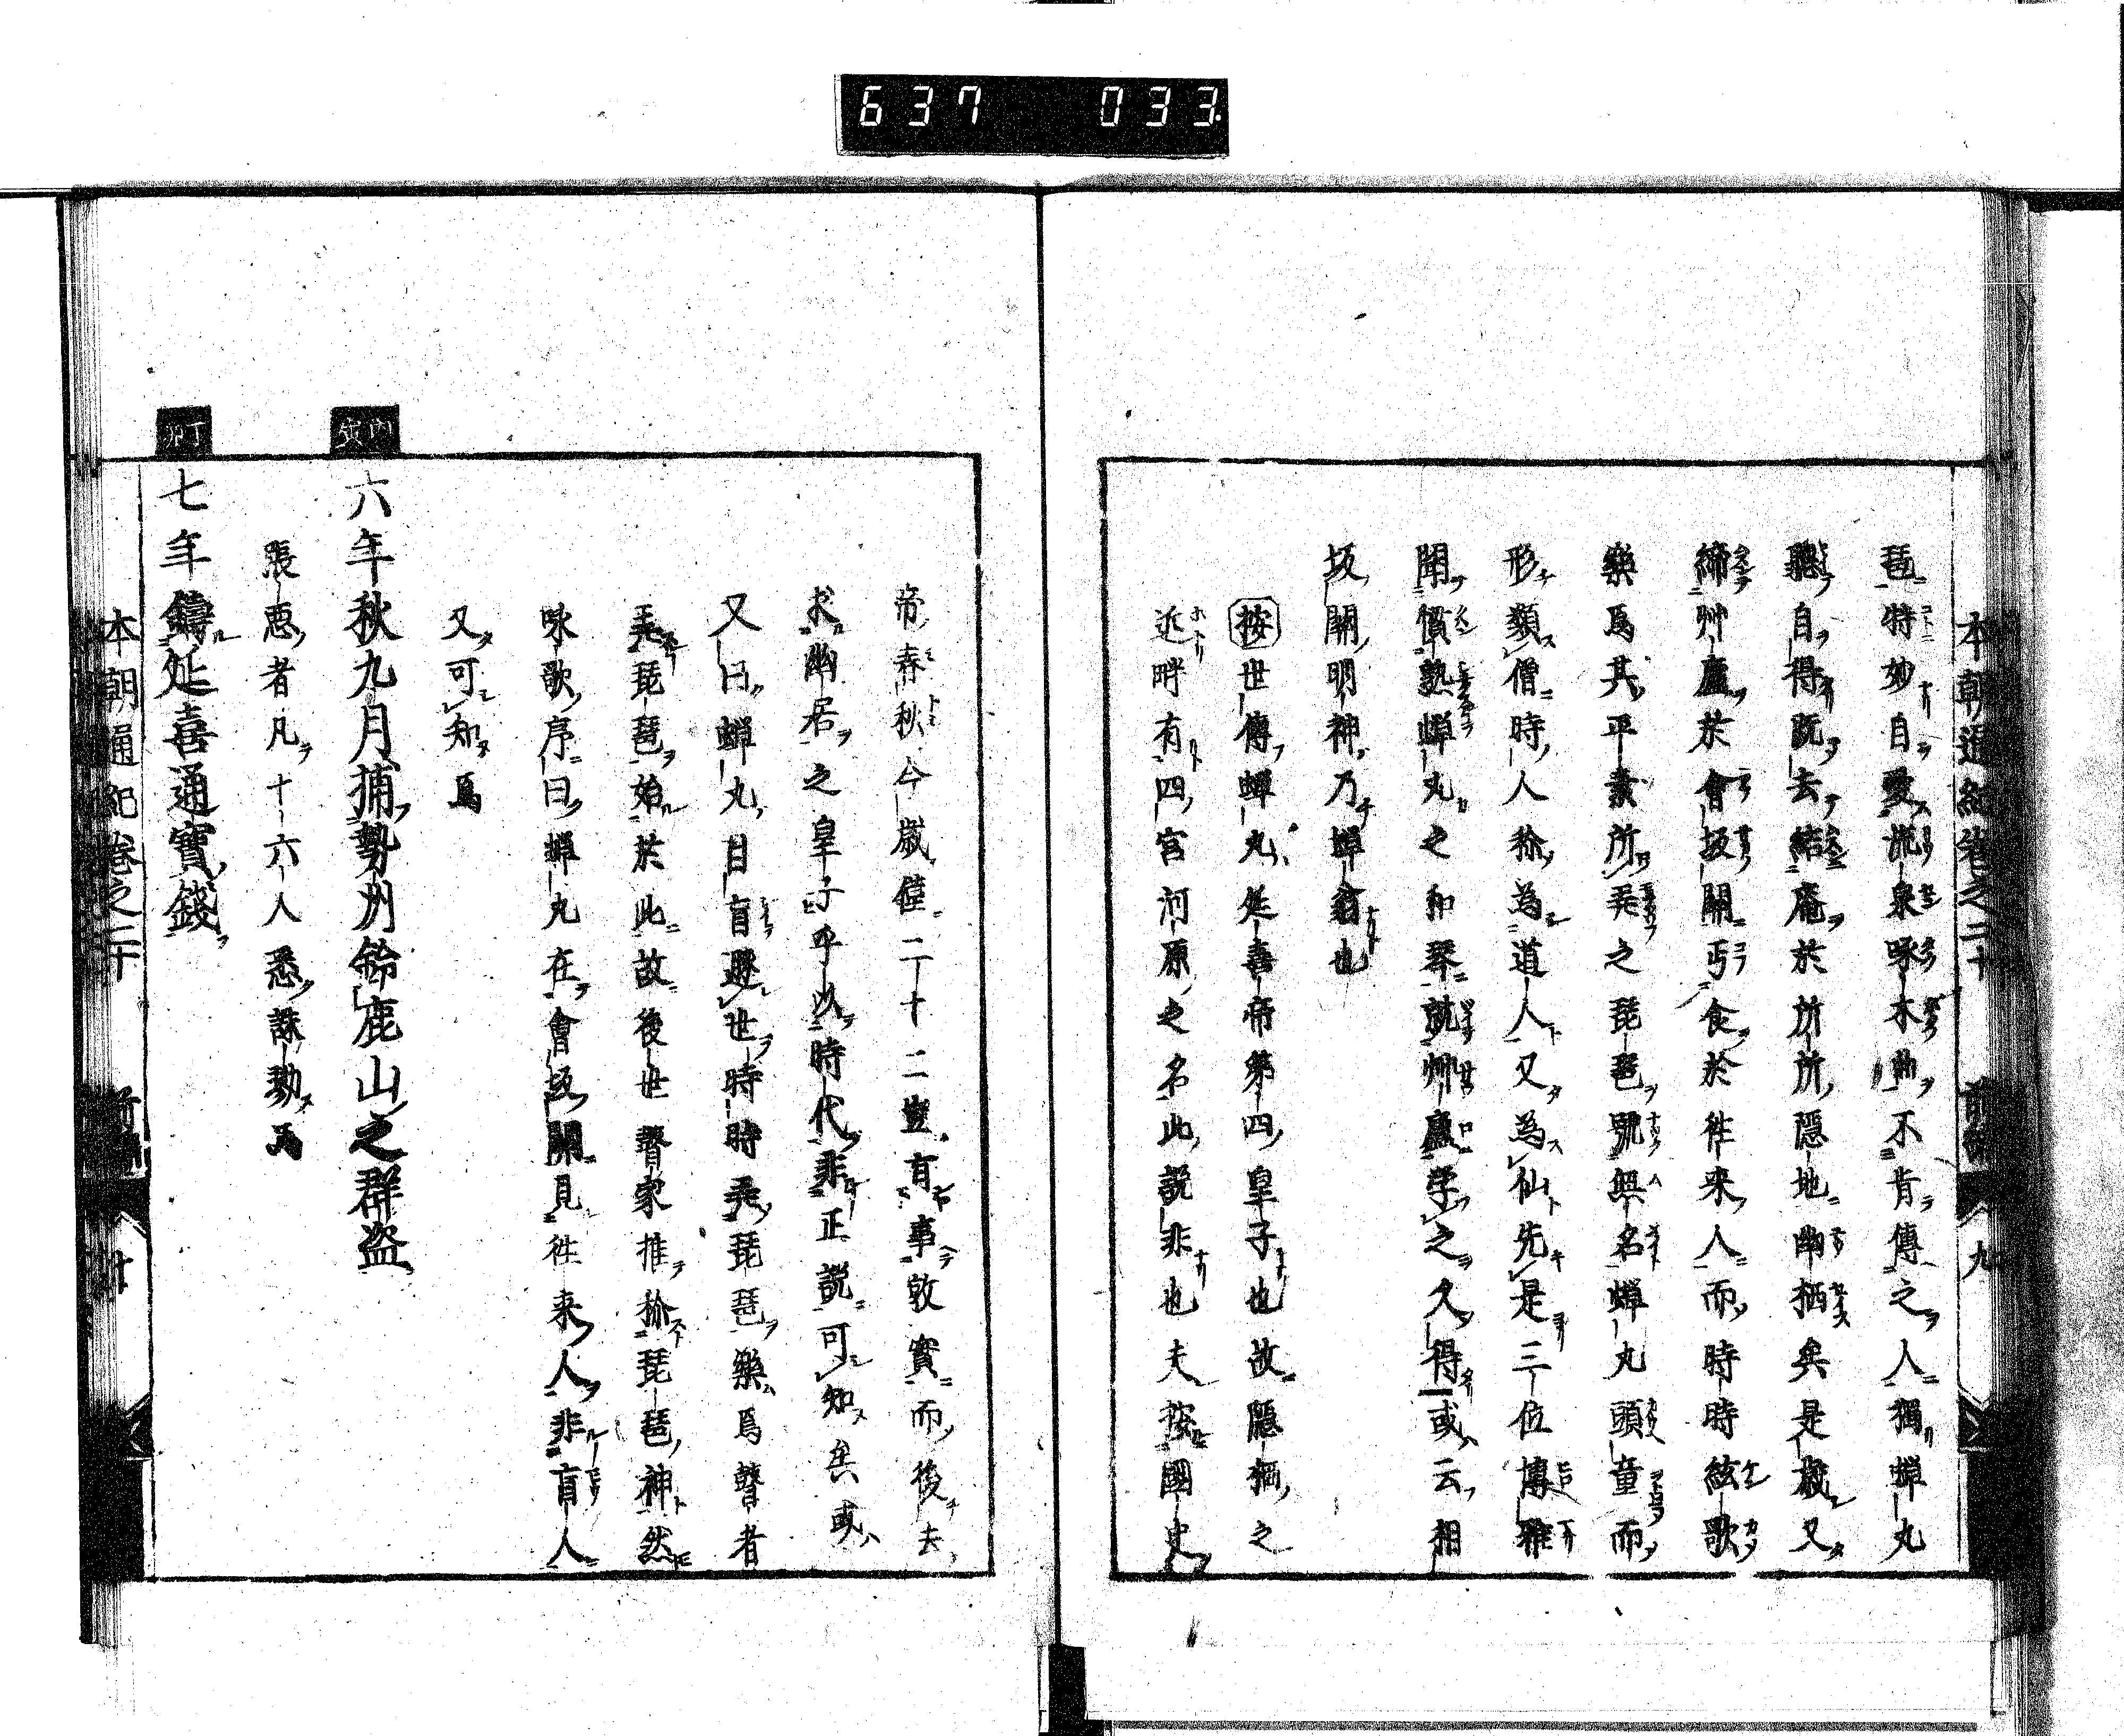 637 033
本朝通紀卷之二十 前編 九
琶特妙自愛流泉啄木曲不肯傳之人獨蝉丸
聽自得既去結庵於所所隠地幽栖矣是歳又
締艸廬於會坂關丐食於徃来人而時時絃歌
樂爲其平素所弄之琵琶號無名蝉丸頭童而
形類僧時人称為道人又為仙先是三位博雅
聞慣熟蝉丸之和琴就艸廬学之久得或云相
坂關明神乃蝉翁也
按世傳蝉丸延喜帝第四皇子也故隠栖之
近畔有四宮河原之名此説非也夫按國史
帝春秋今歳僅二十二豈有事敦實而後去
求幽居之皇子乎以時代非正説可知矣或
又曰蝉丸目盲遯世時時弄琵琶樂焉瞽者
弄琵琶始於此故後世瞽家推称琵琶神然
咏歌序曰蝉丸在會坂關見徃来人非盲人
又可知焉
丙寅
六年秋九月捕勢州鈴鹿山之群盗
張惡者凡十六人悉誅勦焉
丁卯
七年鑄延喜通寳錢
本朝通紀卷之二十 前編 十